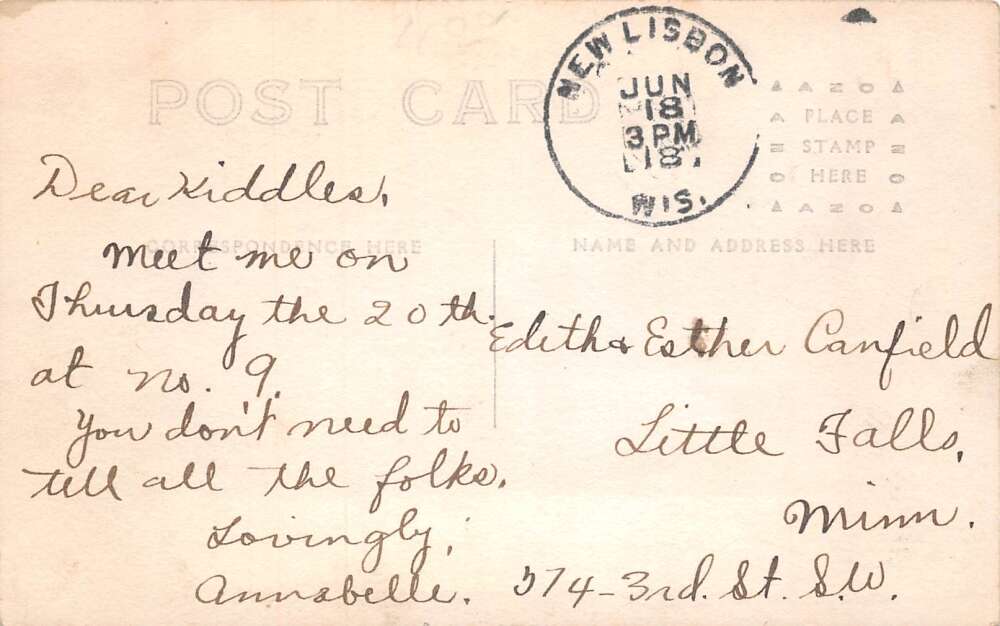 POST CARD
NEW LISBON
JUN
18
3 PM
18
WIS.
AZO
PLACE
STAMP
HERE
AZO
CORRESPONDENCE HERE
NAME AND ADDRESS HERE
Dear Kiddles,
Meet me on
Thursday the 20th.
at no. 9.
You don't need to
tell all the folks.
Lovingly,
Annabelle.
Edith & Esther Canfield
Little Falls,
Minn.
574-3rd. St. S.W.